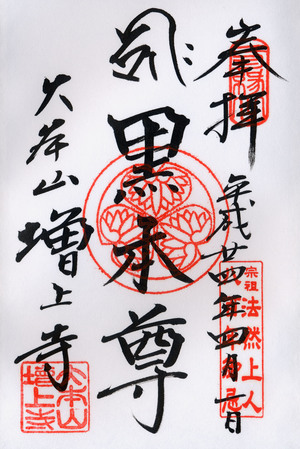 奉拝
平成廿四年四月日
宗祖法然上人
黒本尊
大本山増上寺
大本山
増上寺